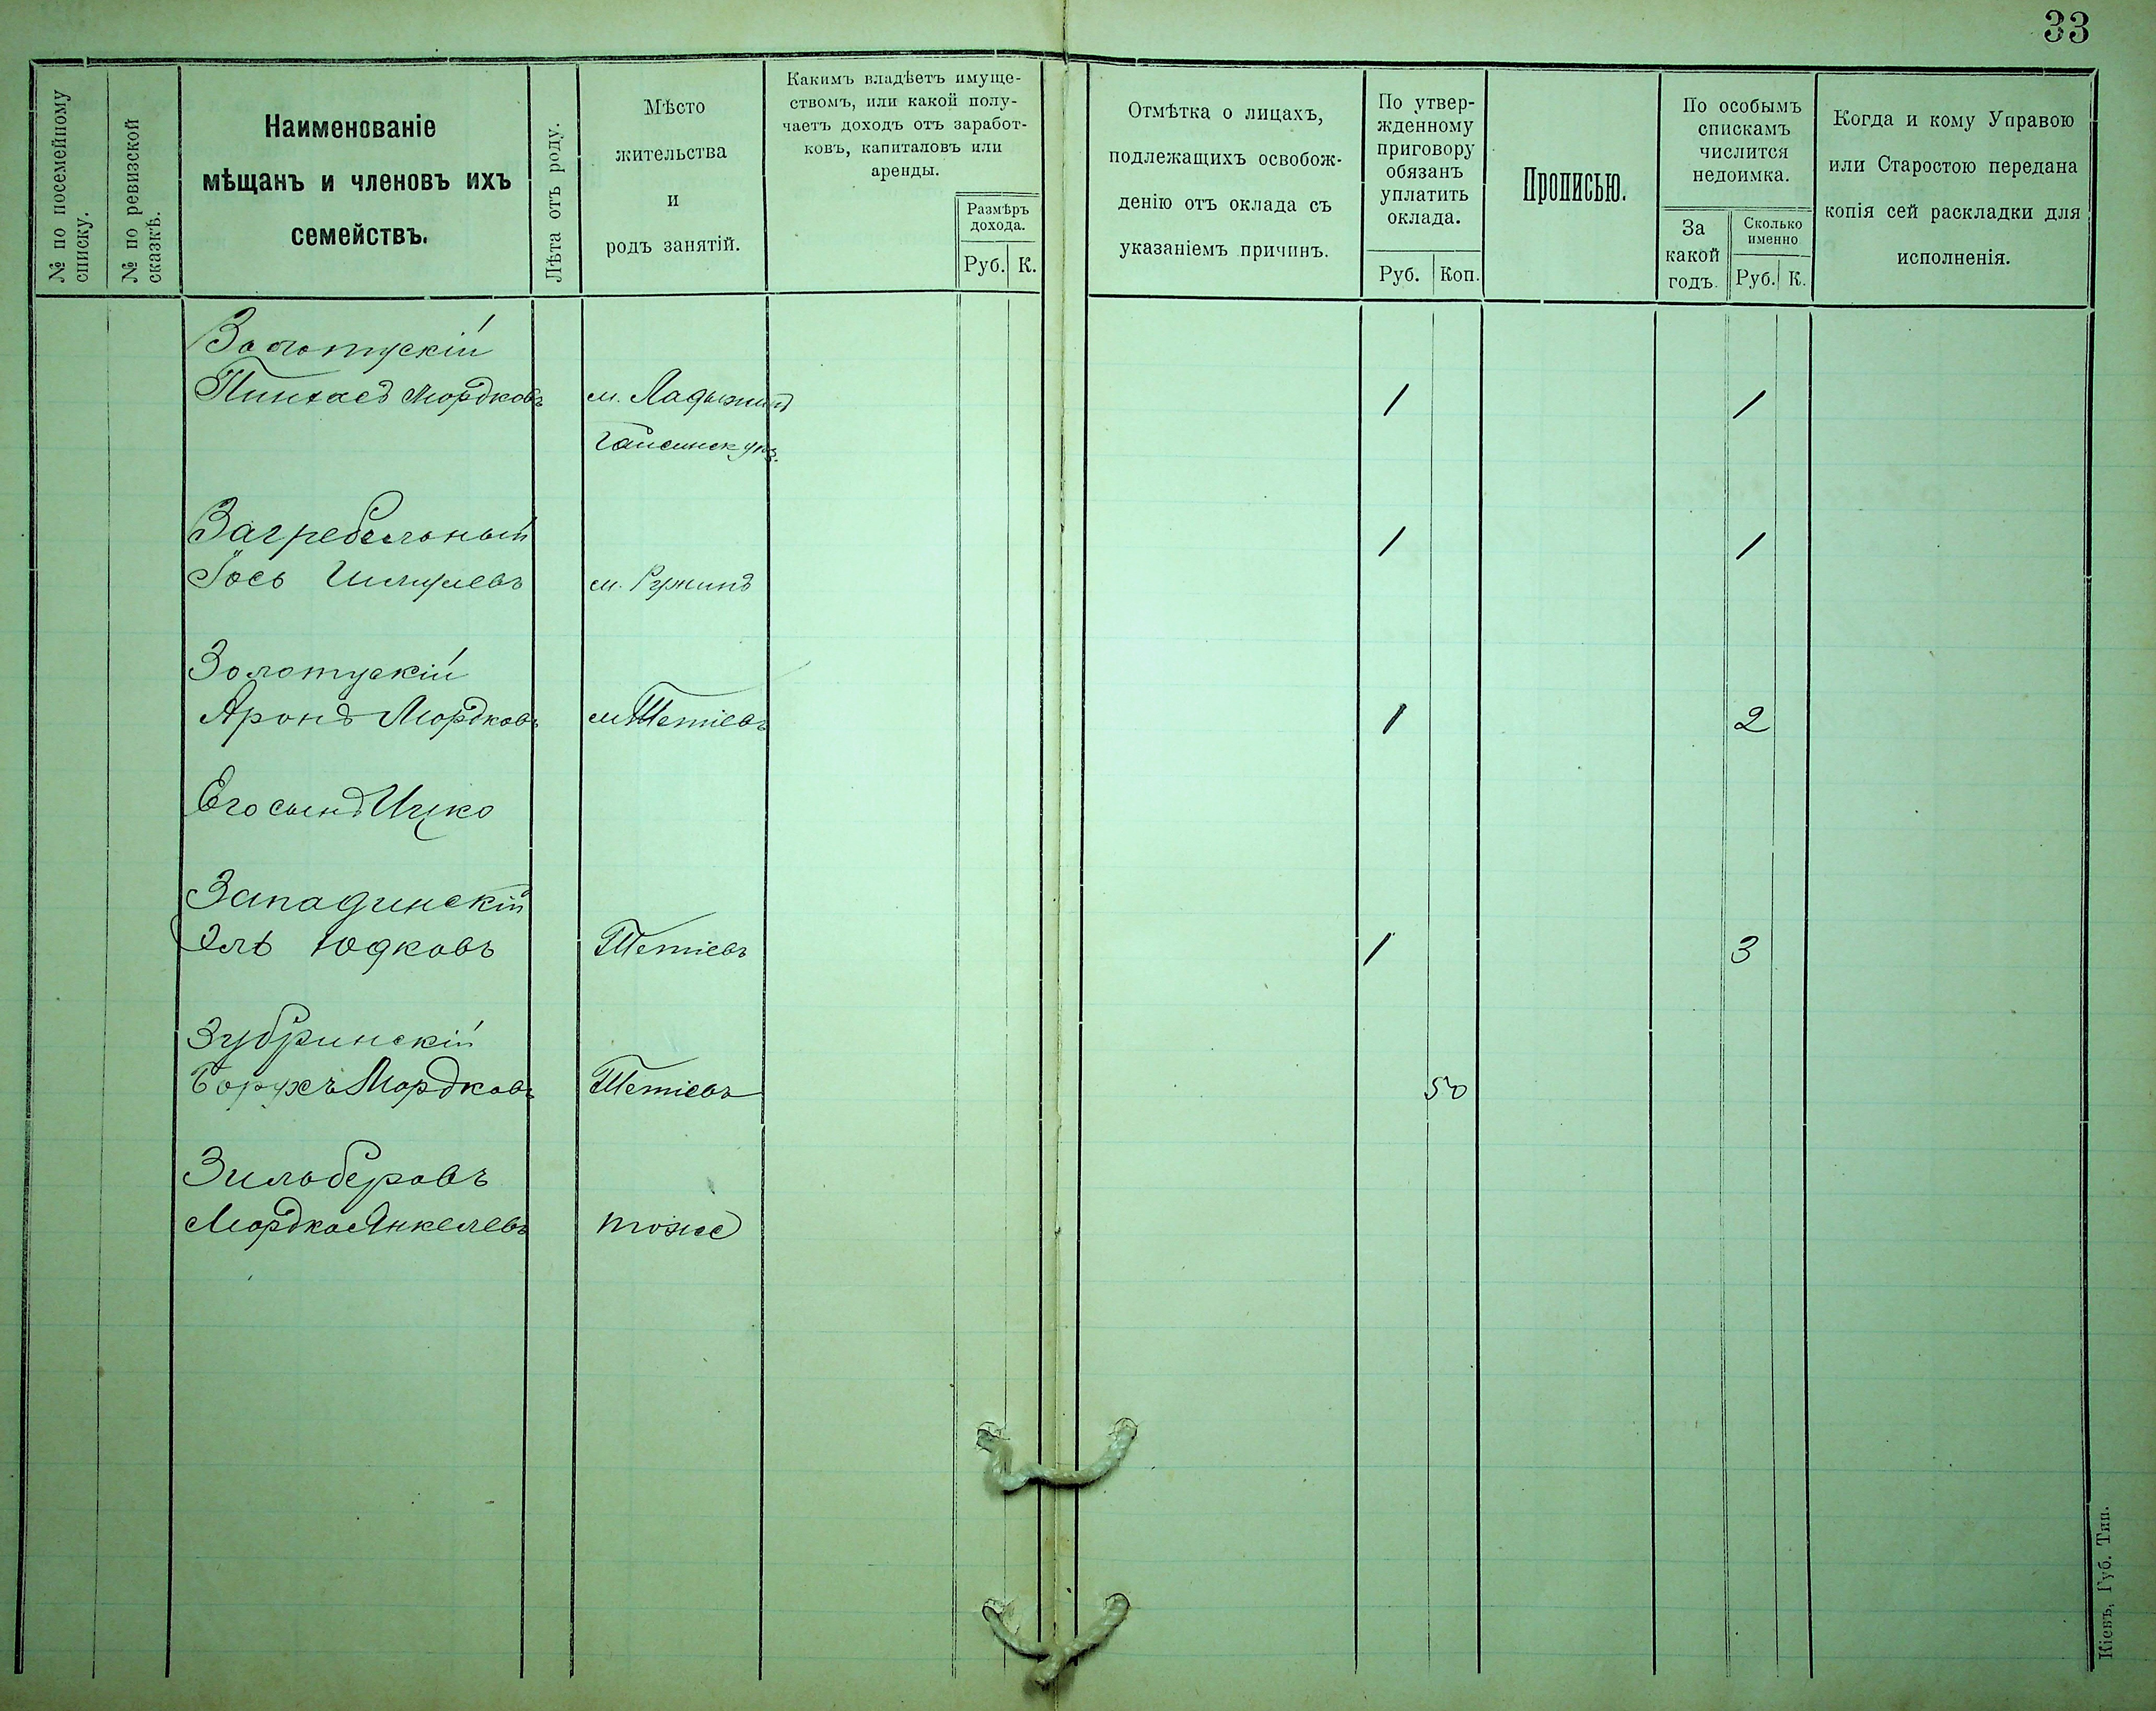 33
№ по посемейному списку.
№ по ревизской сказкѣ.
Наименованіе
мѣщанъ и членовъ ихъ
семействъ.
Лѣта отъ роду.
Мѣсто
жительства
и
родъ занятій.
Какимъ владѣетъ имуще-
ствомъ, или какой полу-
чаетъ доходъ отъ заработ-
ковъ, капиталовъ или
аренды.
Размѣръ
дохода.
Руб. К.
Отмѣтка о лицахъ,
подлежащихъ освобож-
денію отъ оклада съ
указаніемъ причинъ.
По утвер-
жденному
приговору
обязанъ
уплатить
оклада.
Руб. Коп.
Прописью.
По особымъ
спискамъ
числится
недоимка.
За
какой
годъ.
Сколько
именно
Руб. К.
Когда и кому Управою
или Старостою передана
копія сей раскладки для
исполненія.
Золотускій
Пинхасъ Мордковъ м. Ладыжинъ 1 1
Гайсинск уѣз.
Загребельный 1 1
Іось Шмулевъ м. Ружинъ
Золотускій
Аронъ Мордковъ м Тетіевъ 1 2
Его сынъ Ицко
Западинскій
Эль Юдковъ Тетіевъ 1 3
Зубринскій
Борухъ Мордковъ Тетіевъ 50
Зильберовъ
Мордко Янкелевъ тоже
Кіевъ, Губ. Тип.